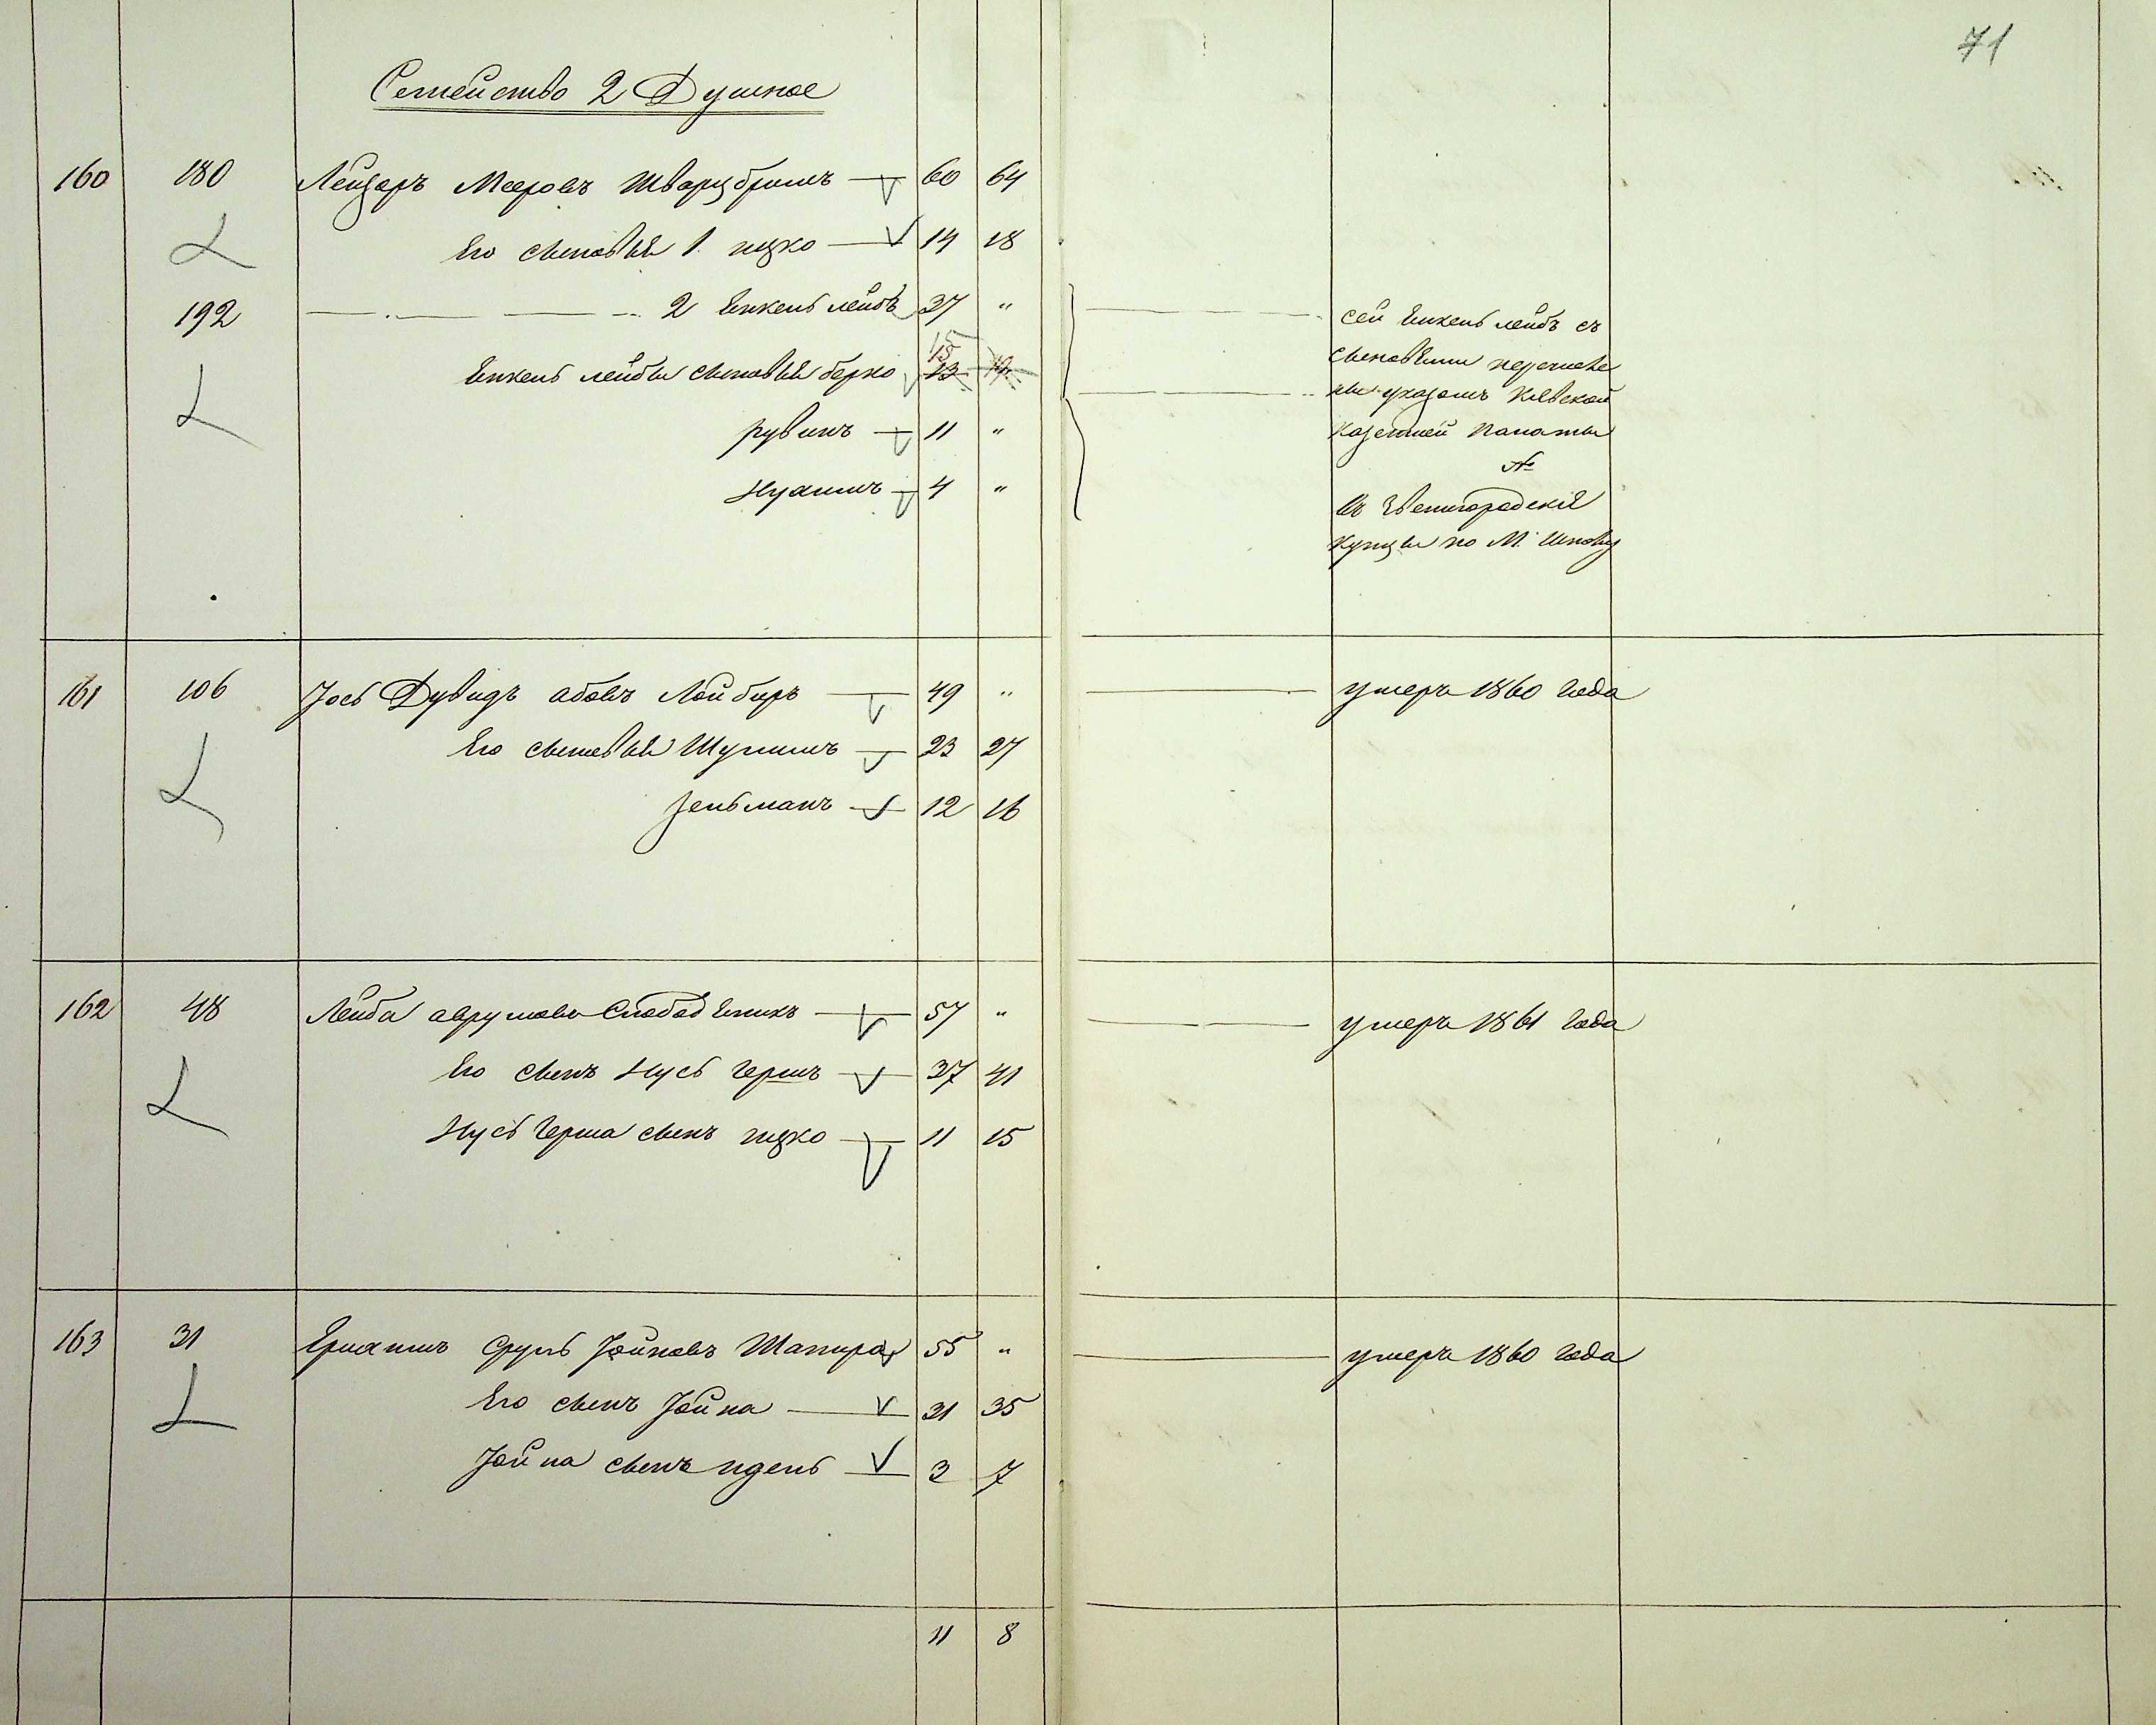 71
Семейство 2 Душное
160 180 Лейзеръ Мееровъ Шварцбримъ 60 64
Его сыновья 1. ицко 14 18
192 2 Янкель лейбъ 37 "
Янкель лейбы сыновья берко 15 13
рувинъ 11 "
Нухимъ 4 "
сей Янкель лейбъ съ
сыновьями перечисле
ны указомъ Кіевской
казенной Палаты
№
въ Звенигородскіе
купцы по М.
161 106 Іось Дувидъ абовъ Лойберъ 49 " умеръ 1860 года
Его сыновья Шулимъ 23 27
Зельманъ 12 16
162 48 Лейба аврумовъ Слободяникъ 57 " умеръ 1861 года
Его сынъ Нусь Гершъ 37 41
Нусь Герша сынъ ицко 11 15
163 31 Ерухимъ Сруль Іойновъ Шапира 55 " умеръ 1860 года
Его сынъ Іойна 31 35
Іойна сынъ идель 3 7
11 8